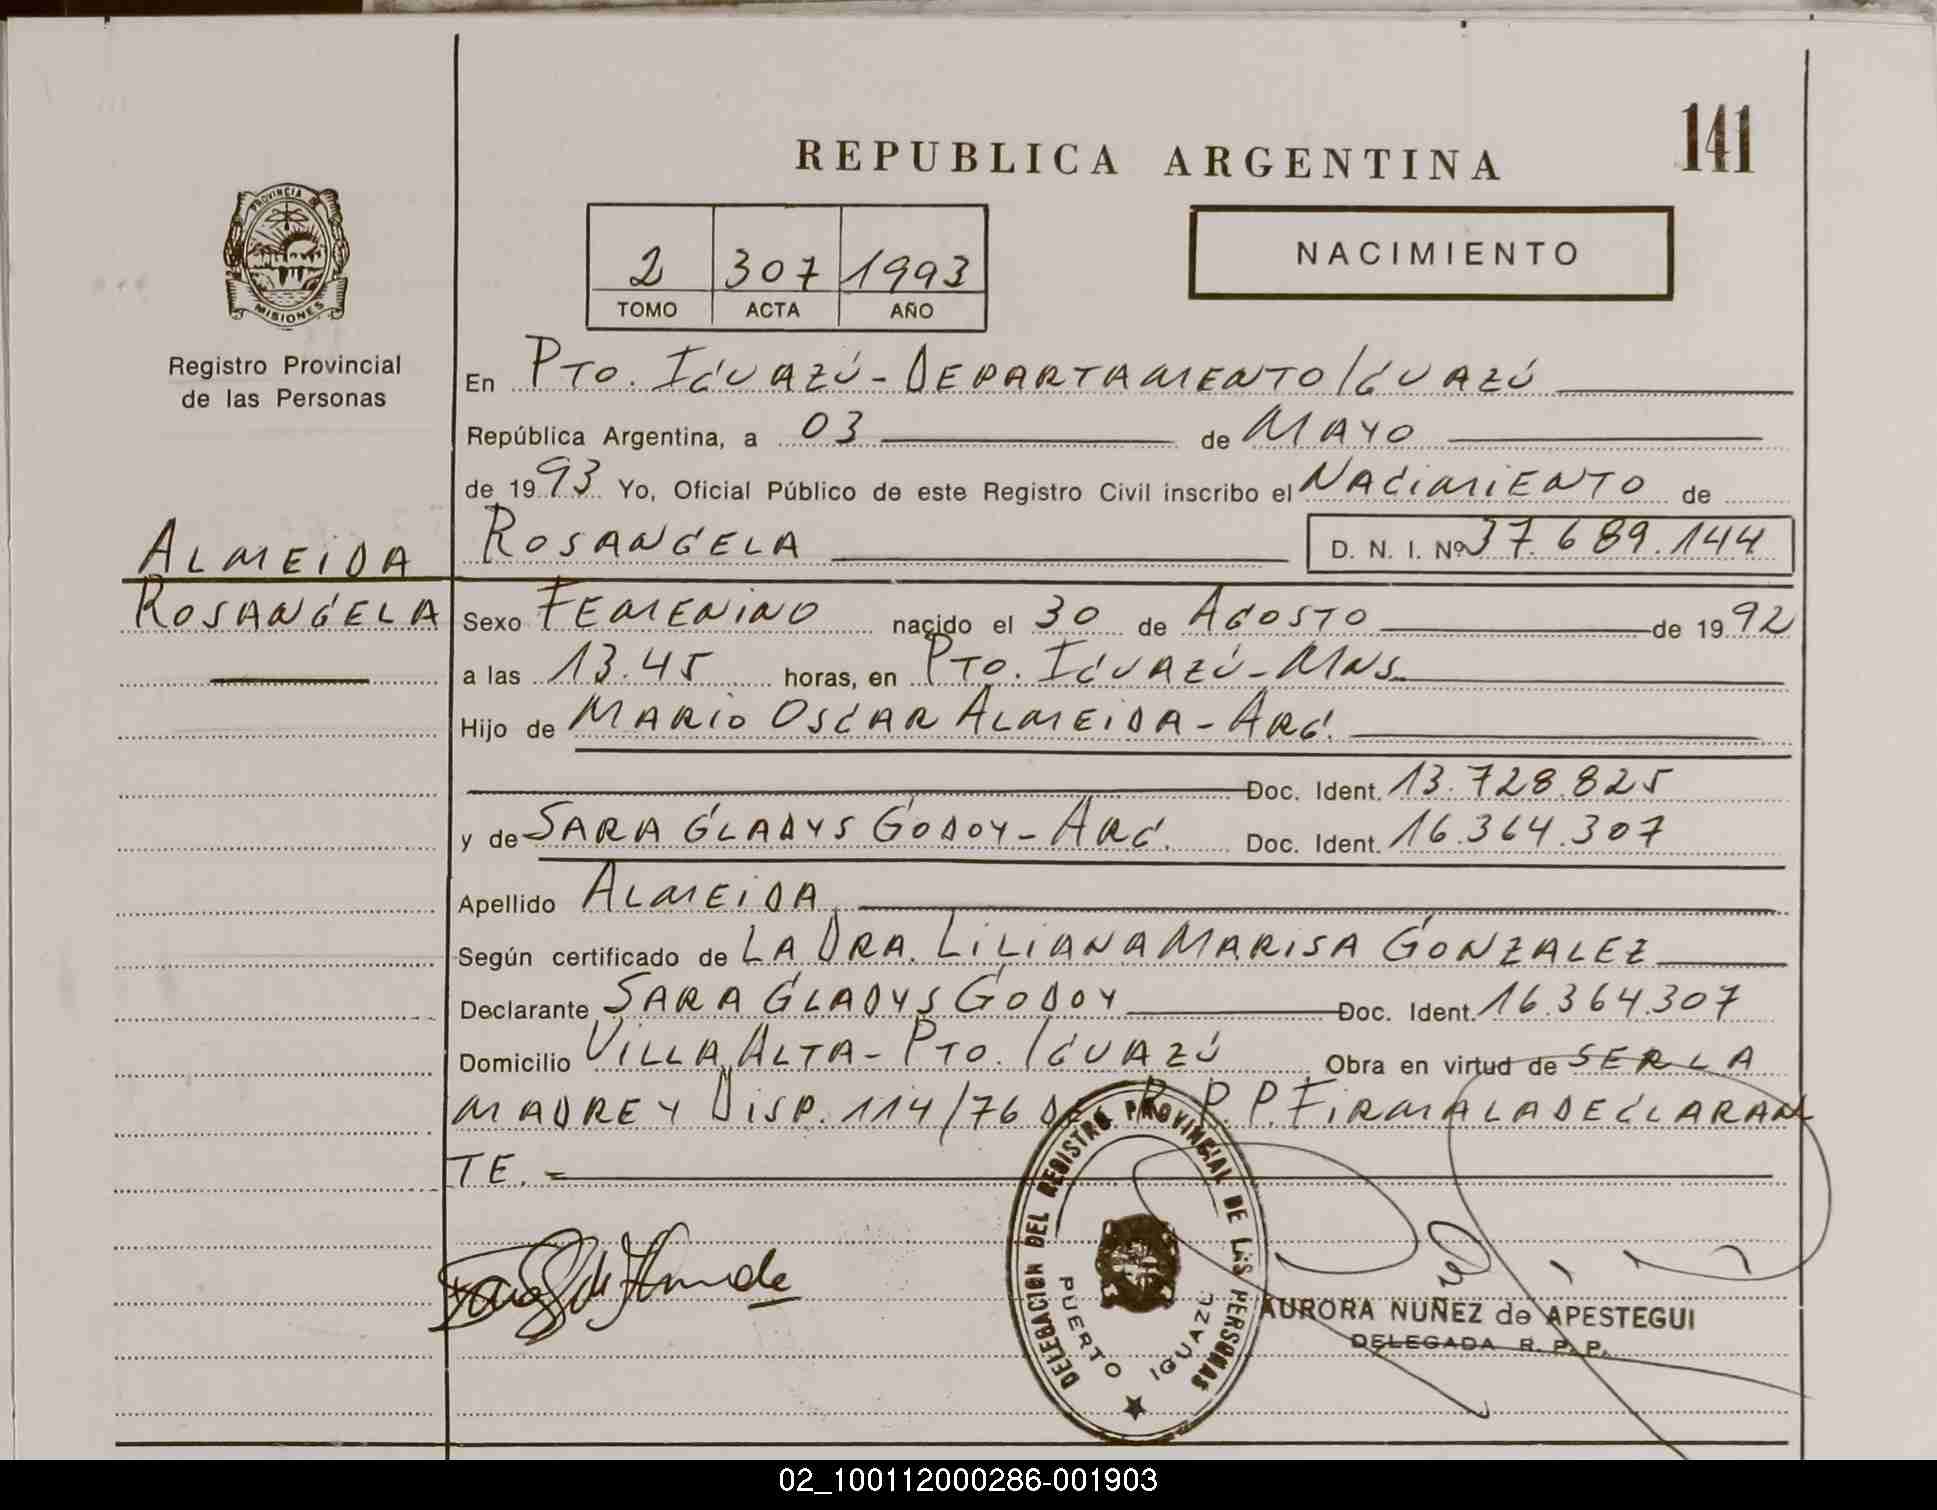 141
REPUBLICA ARGENTINA
PROVINCIA DE
MISIONES
Registro Provincial
de las Personas
2 307 1993
TOMO ACTA AÑO
NACIMIENTO
En PTO. IGUAZÚ - DEPARTAMENTO IGUAZÚ
República Argentina, a 03 de MAYO
de 1993 Yo, Oficial Público de este Registro Civil inscribo el NACIMIENTO de
ALMEIDA
ROSANGELA
ROSANGELA D. N. I. Nº 37.689.144
Sexo FEMENINO nacido el 30 de AGOSTO de 1992
a las 13.45 horas, en PTO. IGUAZÚ - MNS
Hijo de MARIO OSCAR ALMEIDA - ARG.
Doc. Ident. 13.728.825
y de SARA GLADYS GODOY - ARG. Doc. Ident. 16.364.307
Apellido ALMEIDA
Según certificado de LA DRA. LILIANA MARISA GONZALEZ
Declarante SARA GLADYS GODOY Doc. Ident. 16.364.307
Domicilio VILLA ALTA - PTO. IGUAZÚ Obra en virtud de SER LA
MADRE Y DISP. 114/76 DE R.P.P. FIRMA LA DECLARAN
TE.
DELEGACION DEL REGISTRO PROVINCIAL DE LAS PERSONAS
PUERTO IGUAZU
AURORA NUÑEZ de APESTEGUI
DELEGADA R. P. P.
02_100112000286-001903